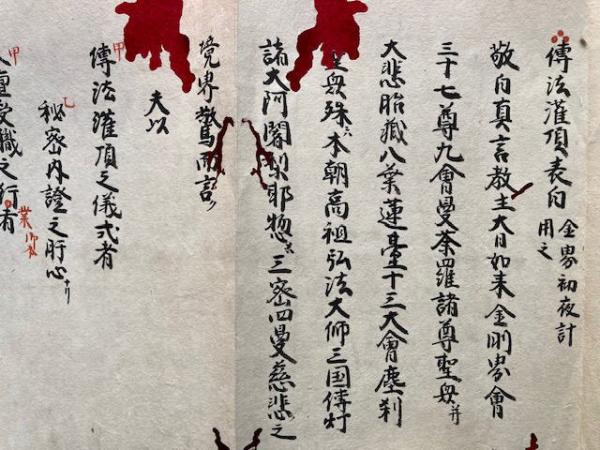 傳法灌頂表白 金界初夜計
用之
敬白真言教主大日如来金剛界會
三十七尊九會曼荼羅諸尊聖衆并
大悲胎藏八葉蓮臺十三大會塵刹
聖衆殊ハ本朝高祖弘法大师三国傳灯
諸大阿闍梨耶惣ハ三密四曼慈悲之
境界驚而言
夫以
甲
傳法灌頂之儀式者
乙
秘密内證之肝心ナリ
甲
入壇受職之行者
業